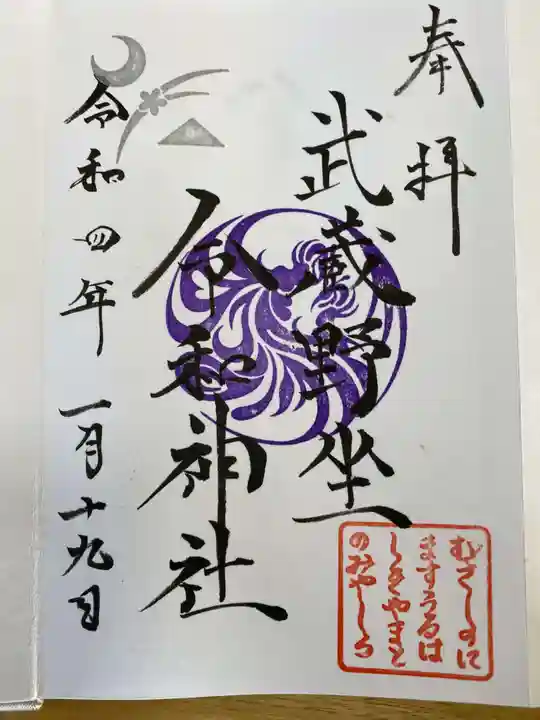 奉拝
武蔵野坐
令和神社
令和四年一月十九日
むさしのに
ますうるは
しきやまと
のみやしろ